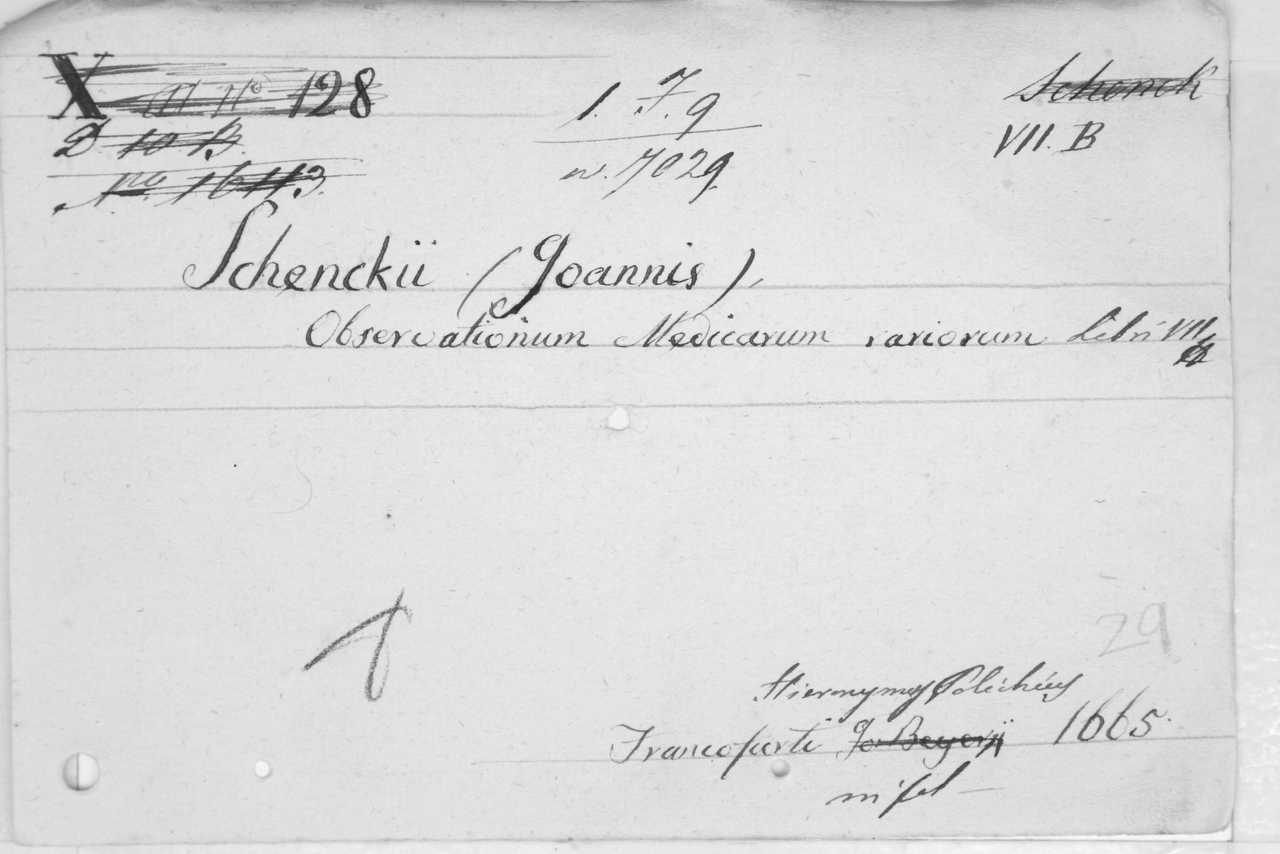 X III No 128
D 10 B.
No. 16113.
1. F. 9
n. 7029
Schenck
VII. B
Schenckii (Joannis),
Observationum Medicarum rariorum Libri VII
29
Hieronymus Polichius
Francofurti Jo Beyerii 1665.
in fol